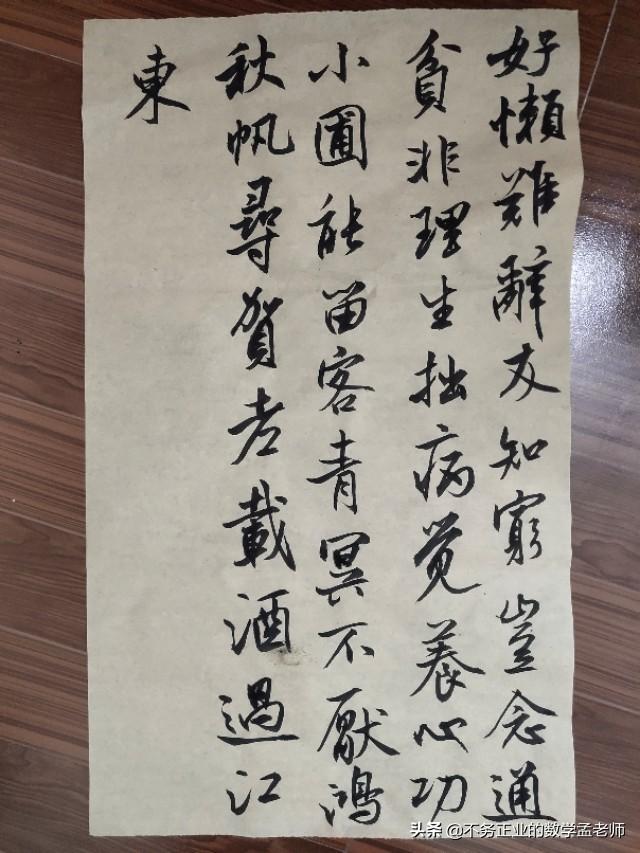 好懶難辭友知窮豈念通
貧非理生拙病觉養心功
小圃能留客青冥不厭鴻
秋帆尋賀老載酒過江
東
头条 @不务正业的数学孟老师